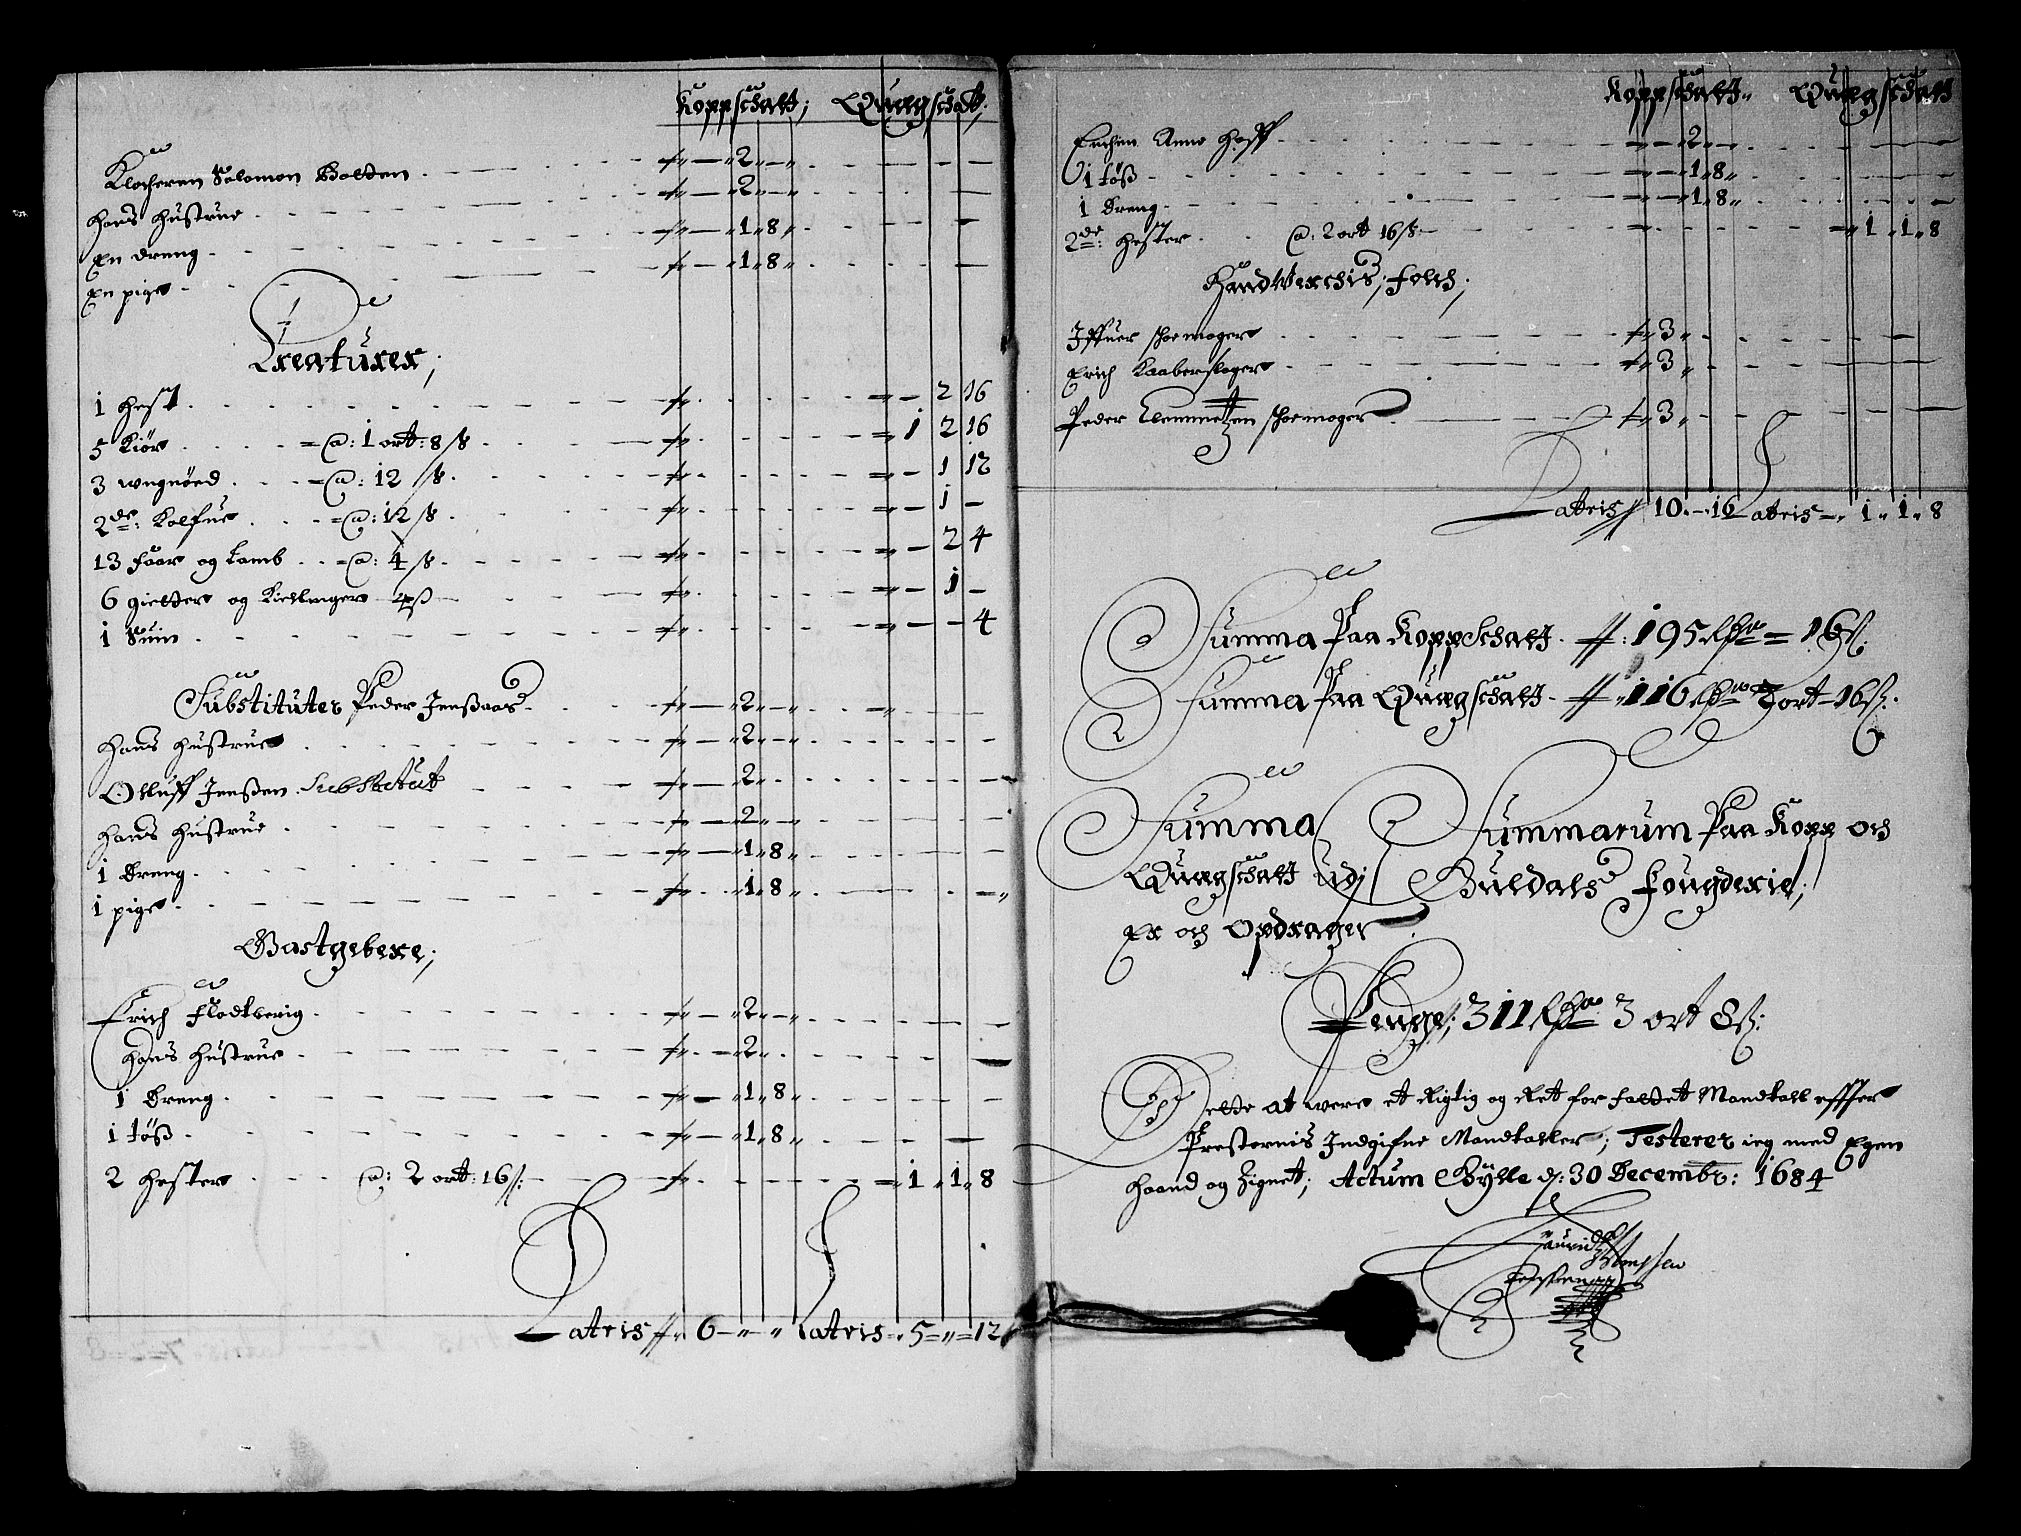 Koppschatt; Quægschat;
Klocheren Salomon Bolten - 2 -
Hans Hustrue - 2 -
En dreng - 1 8
En pige - 1 8
Creaturer;
1 Hest - 2 16
5 Kiør a: 1 ort: 8 ß 1 2 16
3 ungnøed a: 12 ß - 1 12
2de: Kalfue a: 12 ß - 1 -
13 Faar og Lamb a: 4 ß - 2 4
6 gietter og Kiedlinger 4 ß - 1 -
1 Suin - - 4
Substituter Peder Jenßaas - 2 -
Hans Hustrue - 2 -
Olluff Jenßen Substitut - 2
Hans Hustrue - 2 -
1 Dreng - 1 8
1 pige - 1 8
Gastgebere;
Erich Flodtberig - 2 -
Hans Hustrue - 2
1 Dreng - 1 8
1 töß - 1 8
2 Hester a: 2 ort: 16 ß: 1 1 8
Lateris 6 - - Lateris 5 - 12
Koppschatt Quægschatt
Enchen Anne Hoff - 2 -
1 töß - 1 8
1 Dreng - 1 8
2de: Hester a: 2 ort 16 ß 1 1 8
Handtverchis; Folch;
Iffuer Schoemager 3
Erich Kaaberslager 3
Peder Clemmetzen Schoemager 3
Lateris 10 - 16 Lateris 1 1 8
Summa Paa KoppSchatt: 195 Rdr = 16 ß:
Summa Paa Quægschatt 116 Rdr 2 ort - 16 ß:
Summa Summarum Paa Kopp och
Quægschatt Udj Guldals Fougderie;
Er och Opdrager
Penge; 311 Rdr 3 ort 8 ß:
Dette at were et Rigtig og Ret for fattet Mandtall effter
Presternis Indgifne Mandtaller; Testerer ieg med Egen
Haand og Zignet; Actum Bÿlle d: 30 Decembr: 1684